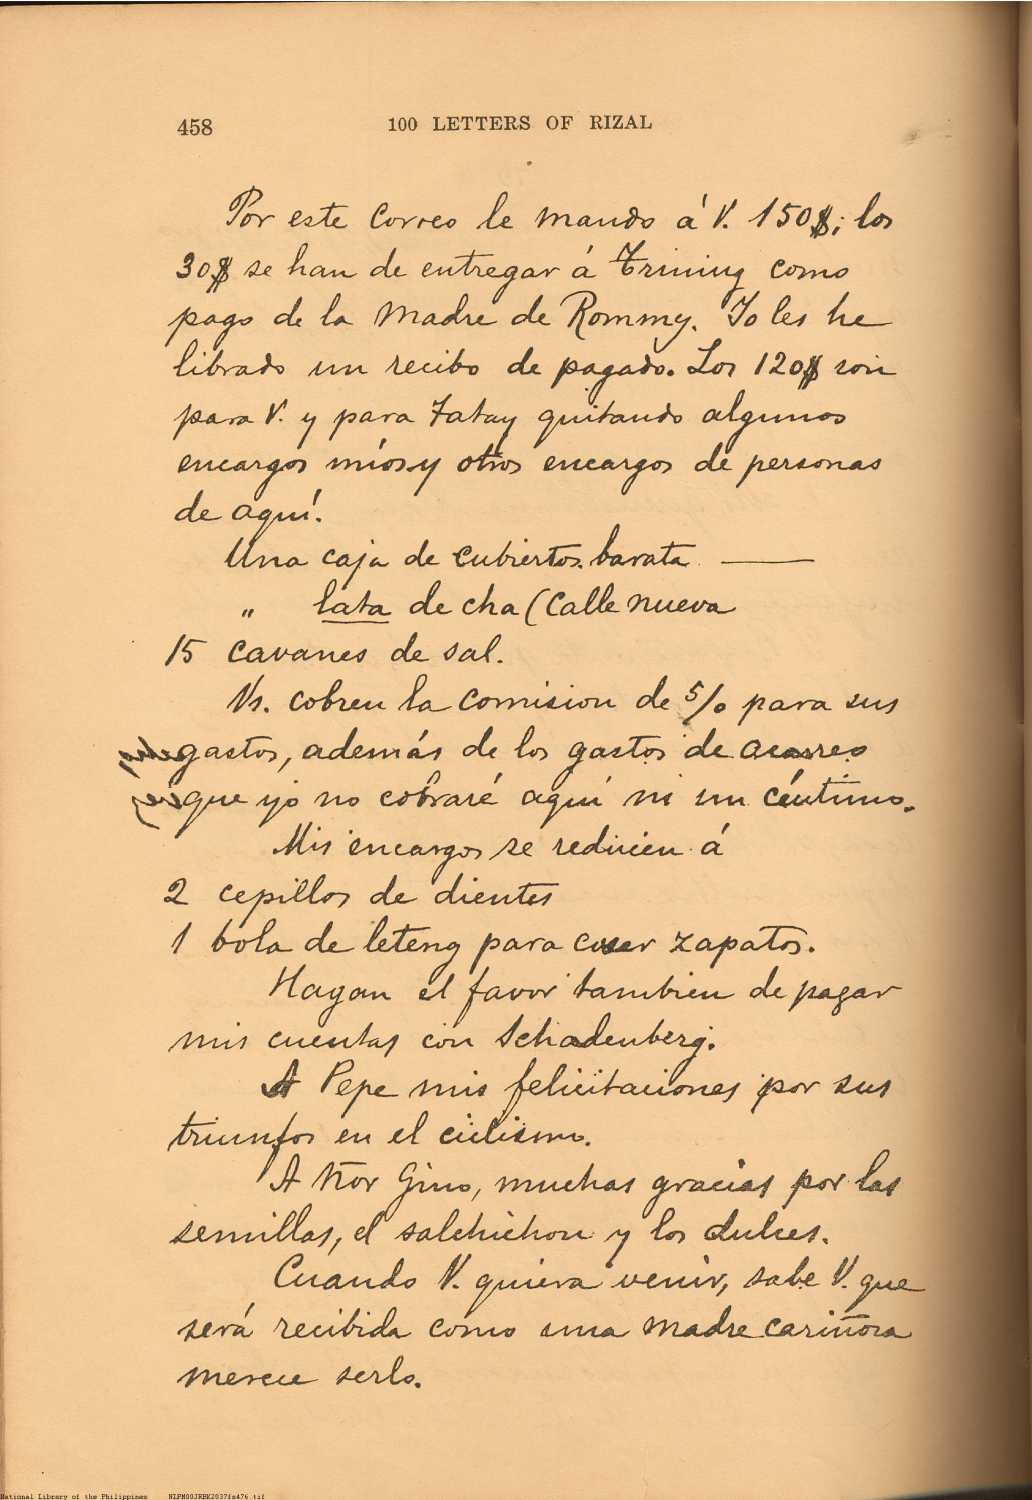 458
100 LETTERS OF RIZAL
Por este correo le mando á V. 150$; los
30$ se han de entregar á Trining como
pago de la Madre de Rommy. Yo les he
librado un recibo de pagado. Los 120$ son
para V. y para Tatay quitando algunos
encargos míos y otros encargos de personas
de aquí.
Una caja de cubiertos barata ——
" lata de cha (Calle nueva
15 cavanes de sal.
Vs. cobren la comision de 5/0 para sus
gastos, además de los gastos de acarreo
que yo no cobraré aquí ni un céntimo.
Mis encargos se reducen á
2 cepillos de dientes
1 bola de leteng para coser zapatos.
Hagan el favor tambien de pagar
mis cuentas con Schadenberg.
A Pepe mis felicitaciones por sus
triunfos en el ciclismo.
A Ñor Gino, muchas gracias por las
semillas, el salchichon y los dulces.
Cuando V. quiera venir, sabe V. que
será recibida como una madre cariñosa
merece serlo.
National Library of the Philippines